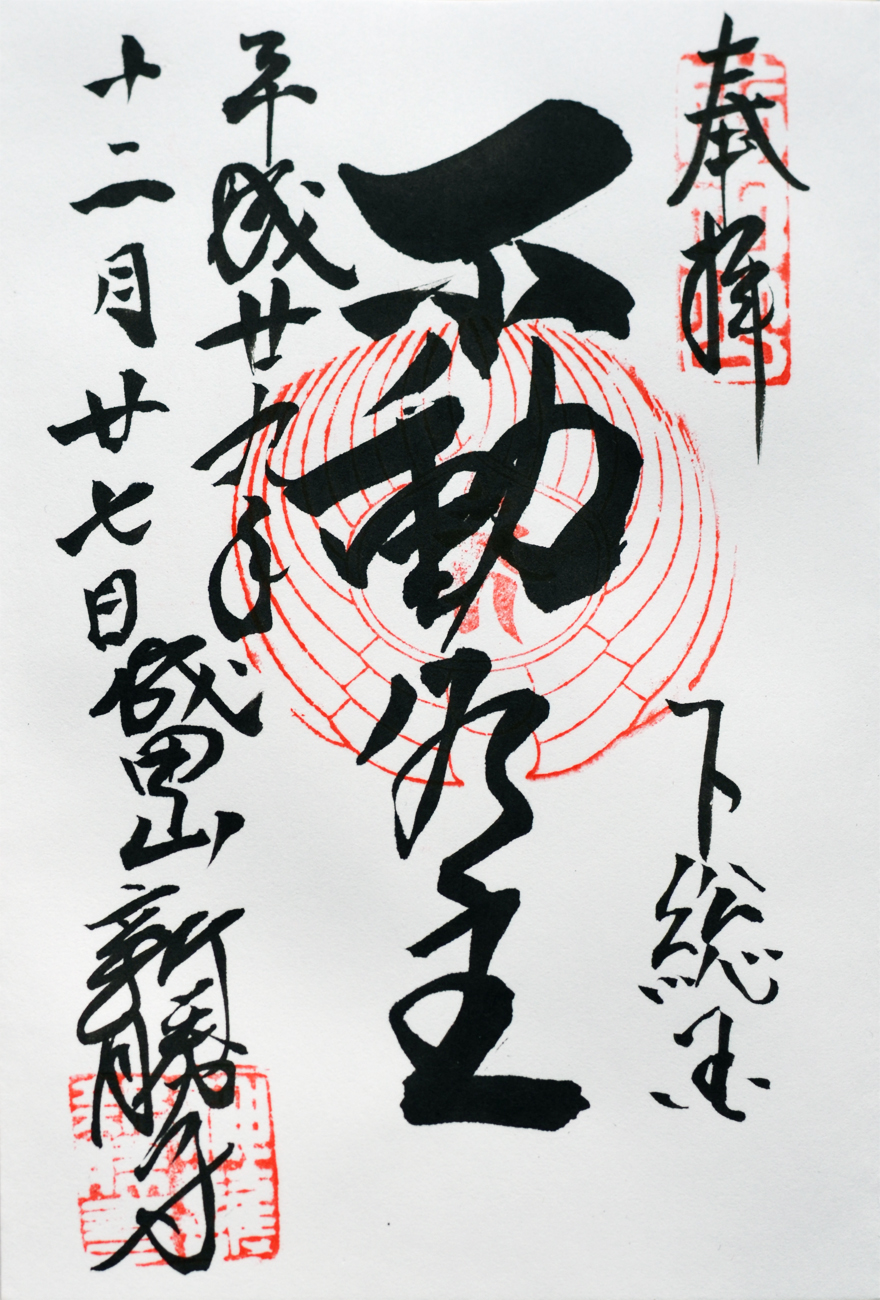 奉拝
下総国
不動明王
平成廿九年
十二月廿七日
成田山
新勝寺